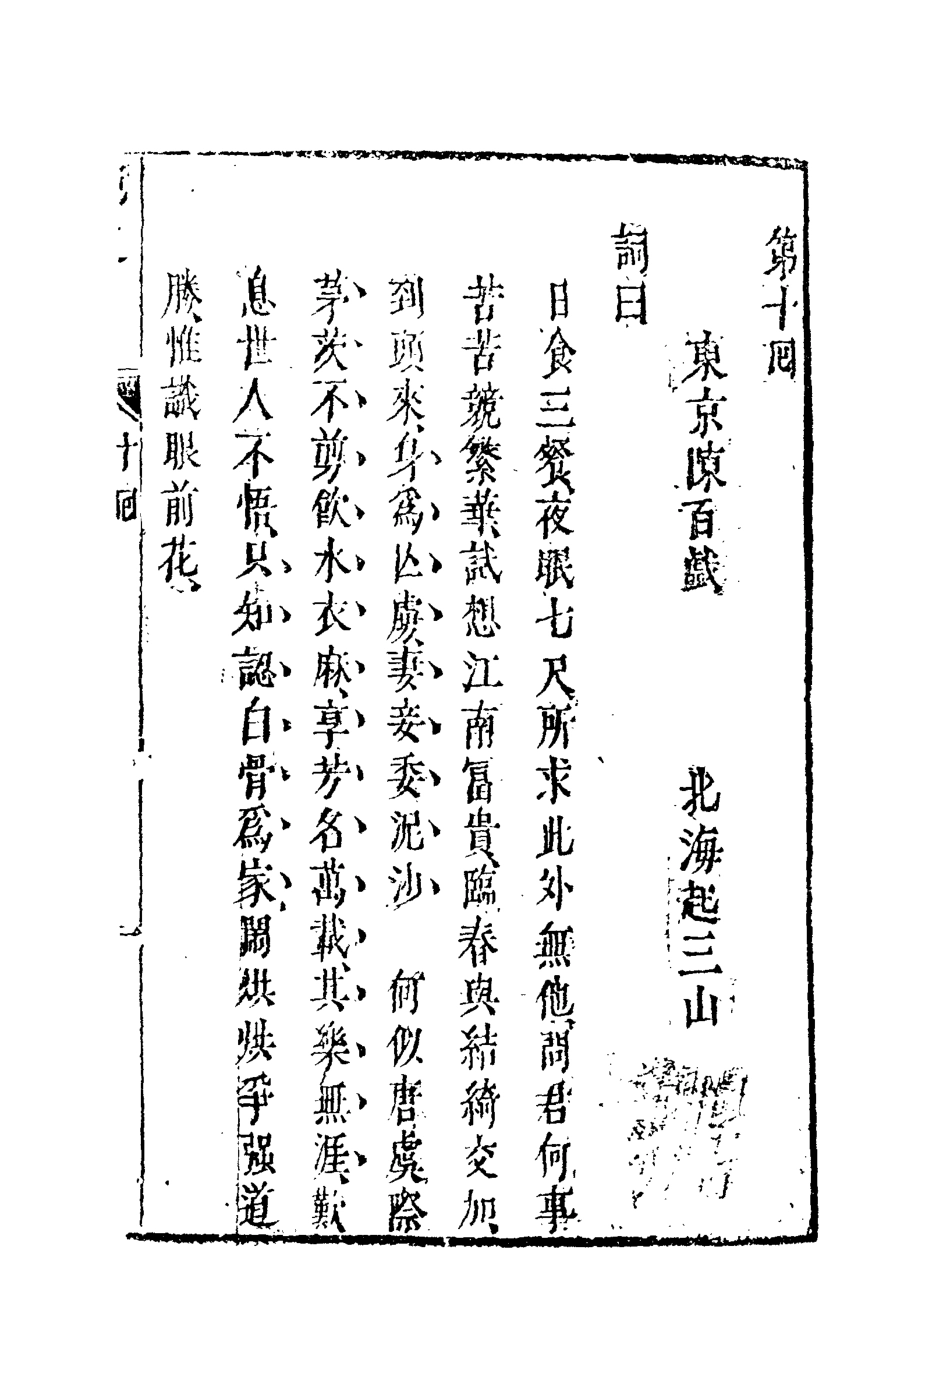 第十回
東京陳百戲　北海起三山
詞曰
日食三餐夜眠七尺所求此外無他問君何事
苦苦競繁華試想江南冨貴臨春與結綺交加
到頭來身為亾虜妻妾委泥沙　何似唐虞際
茅茨不剪飲水衣麻享芳名萬載其樂無涯歎
息世人不悟只知認白骨爲家鬧烘烘爭强道
勝惟識眼前花
十回